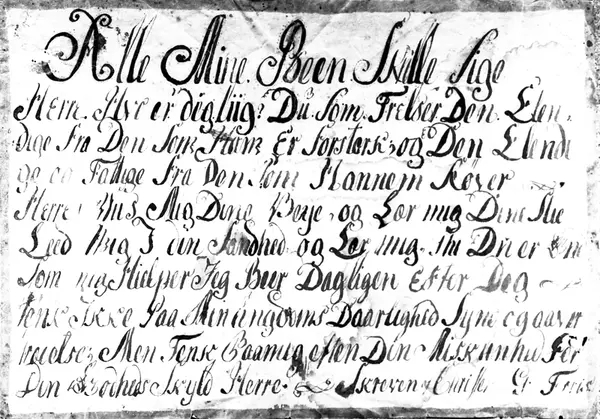 Alle Mine Been Skulle Sige
Herre Hvo er dig liig? Du Som Frelser Den Elen-
dige fra Den Som Ham Er for Stærk, og Den Elendi
ge og Fattige fra Den Som Hannem Røver
Herre Viis Mig Dine Veye, og Lær mig Dine Stie
Leed Mig I din Sandhed og Lær mig thi Du er
Som mig Hielper Jeg Beer Dagligen Efter Dog
tenk Ikke Paa Min Ungdoms Daarlighed Synd og over
treelse, Men Tenk Paa mig efter Din Miskunhed For
Din Godheds Skyld Herre Skreven